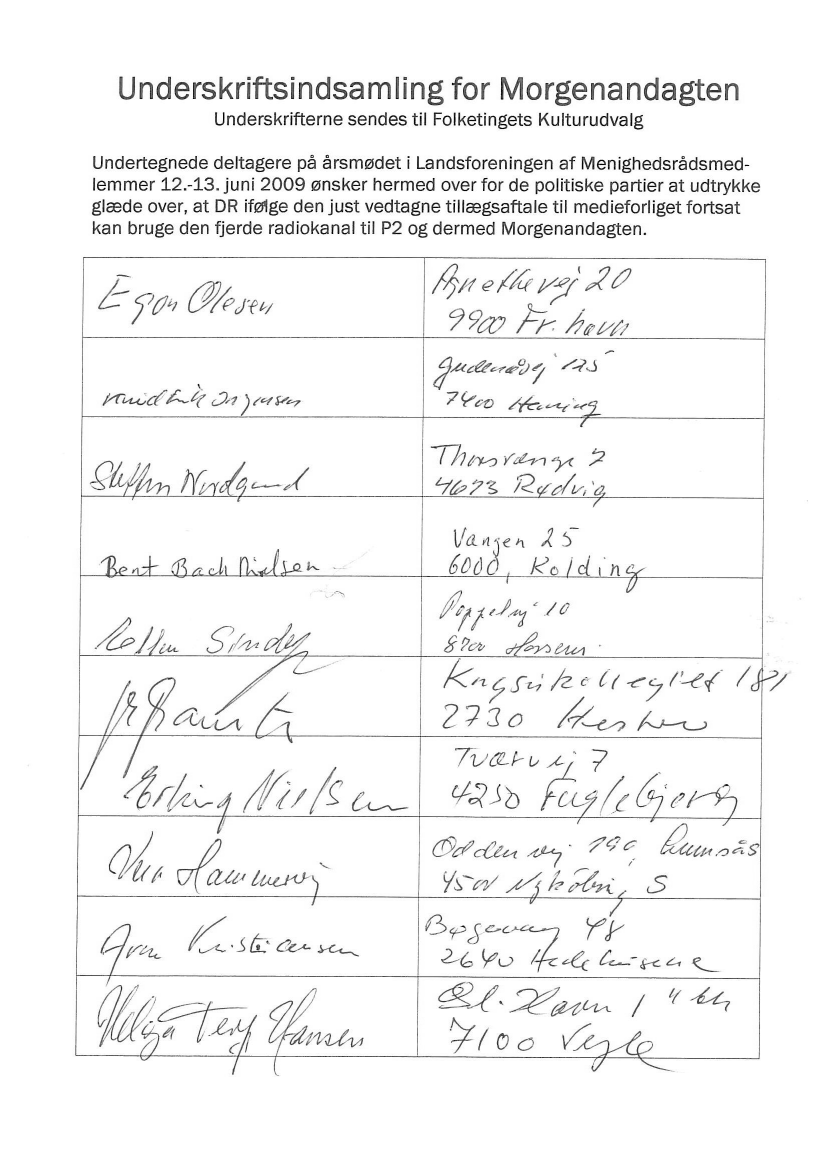 Underskriftsindsamling for Morgenandagten
Underskrifterne sendes til Folketingets Kulturudvalg
Undertegnede deltagere på årsmødet i Landsforeningen af Menighedsrådsmed-
lemmer 12.-13. juni 2009 ønsker hermed over for de politiske partier at udtrykke
glæde over, at DR ifølge den just vedtagne tillægsaftale til medieforliget fortsat
kan bruge den fjerde radiokanal til P2 og dermed Morgenandagten.
Egon Olesen
Agnethevej 20
9900 Fr. havn
Gudenåvej 125
Knud Erik Jørgensen
7400 Herning
Steffen Nordgaard
4673 Rødvig
Vangen 25
Bent Bach Nielsen
6000, Kolding
Poppelvej 10
8700 Horsens
2730 Herlev
Tværvej 7
Erling Nielsen
4250 Fuglebjerg
Oddenvej 190, Lumsås
4500 Nykøbing S
Bøgevang 48
Kristiansen
2640 Hedehusene
Gl. Havn 1
Helga Hansen
7100 Vejle